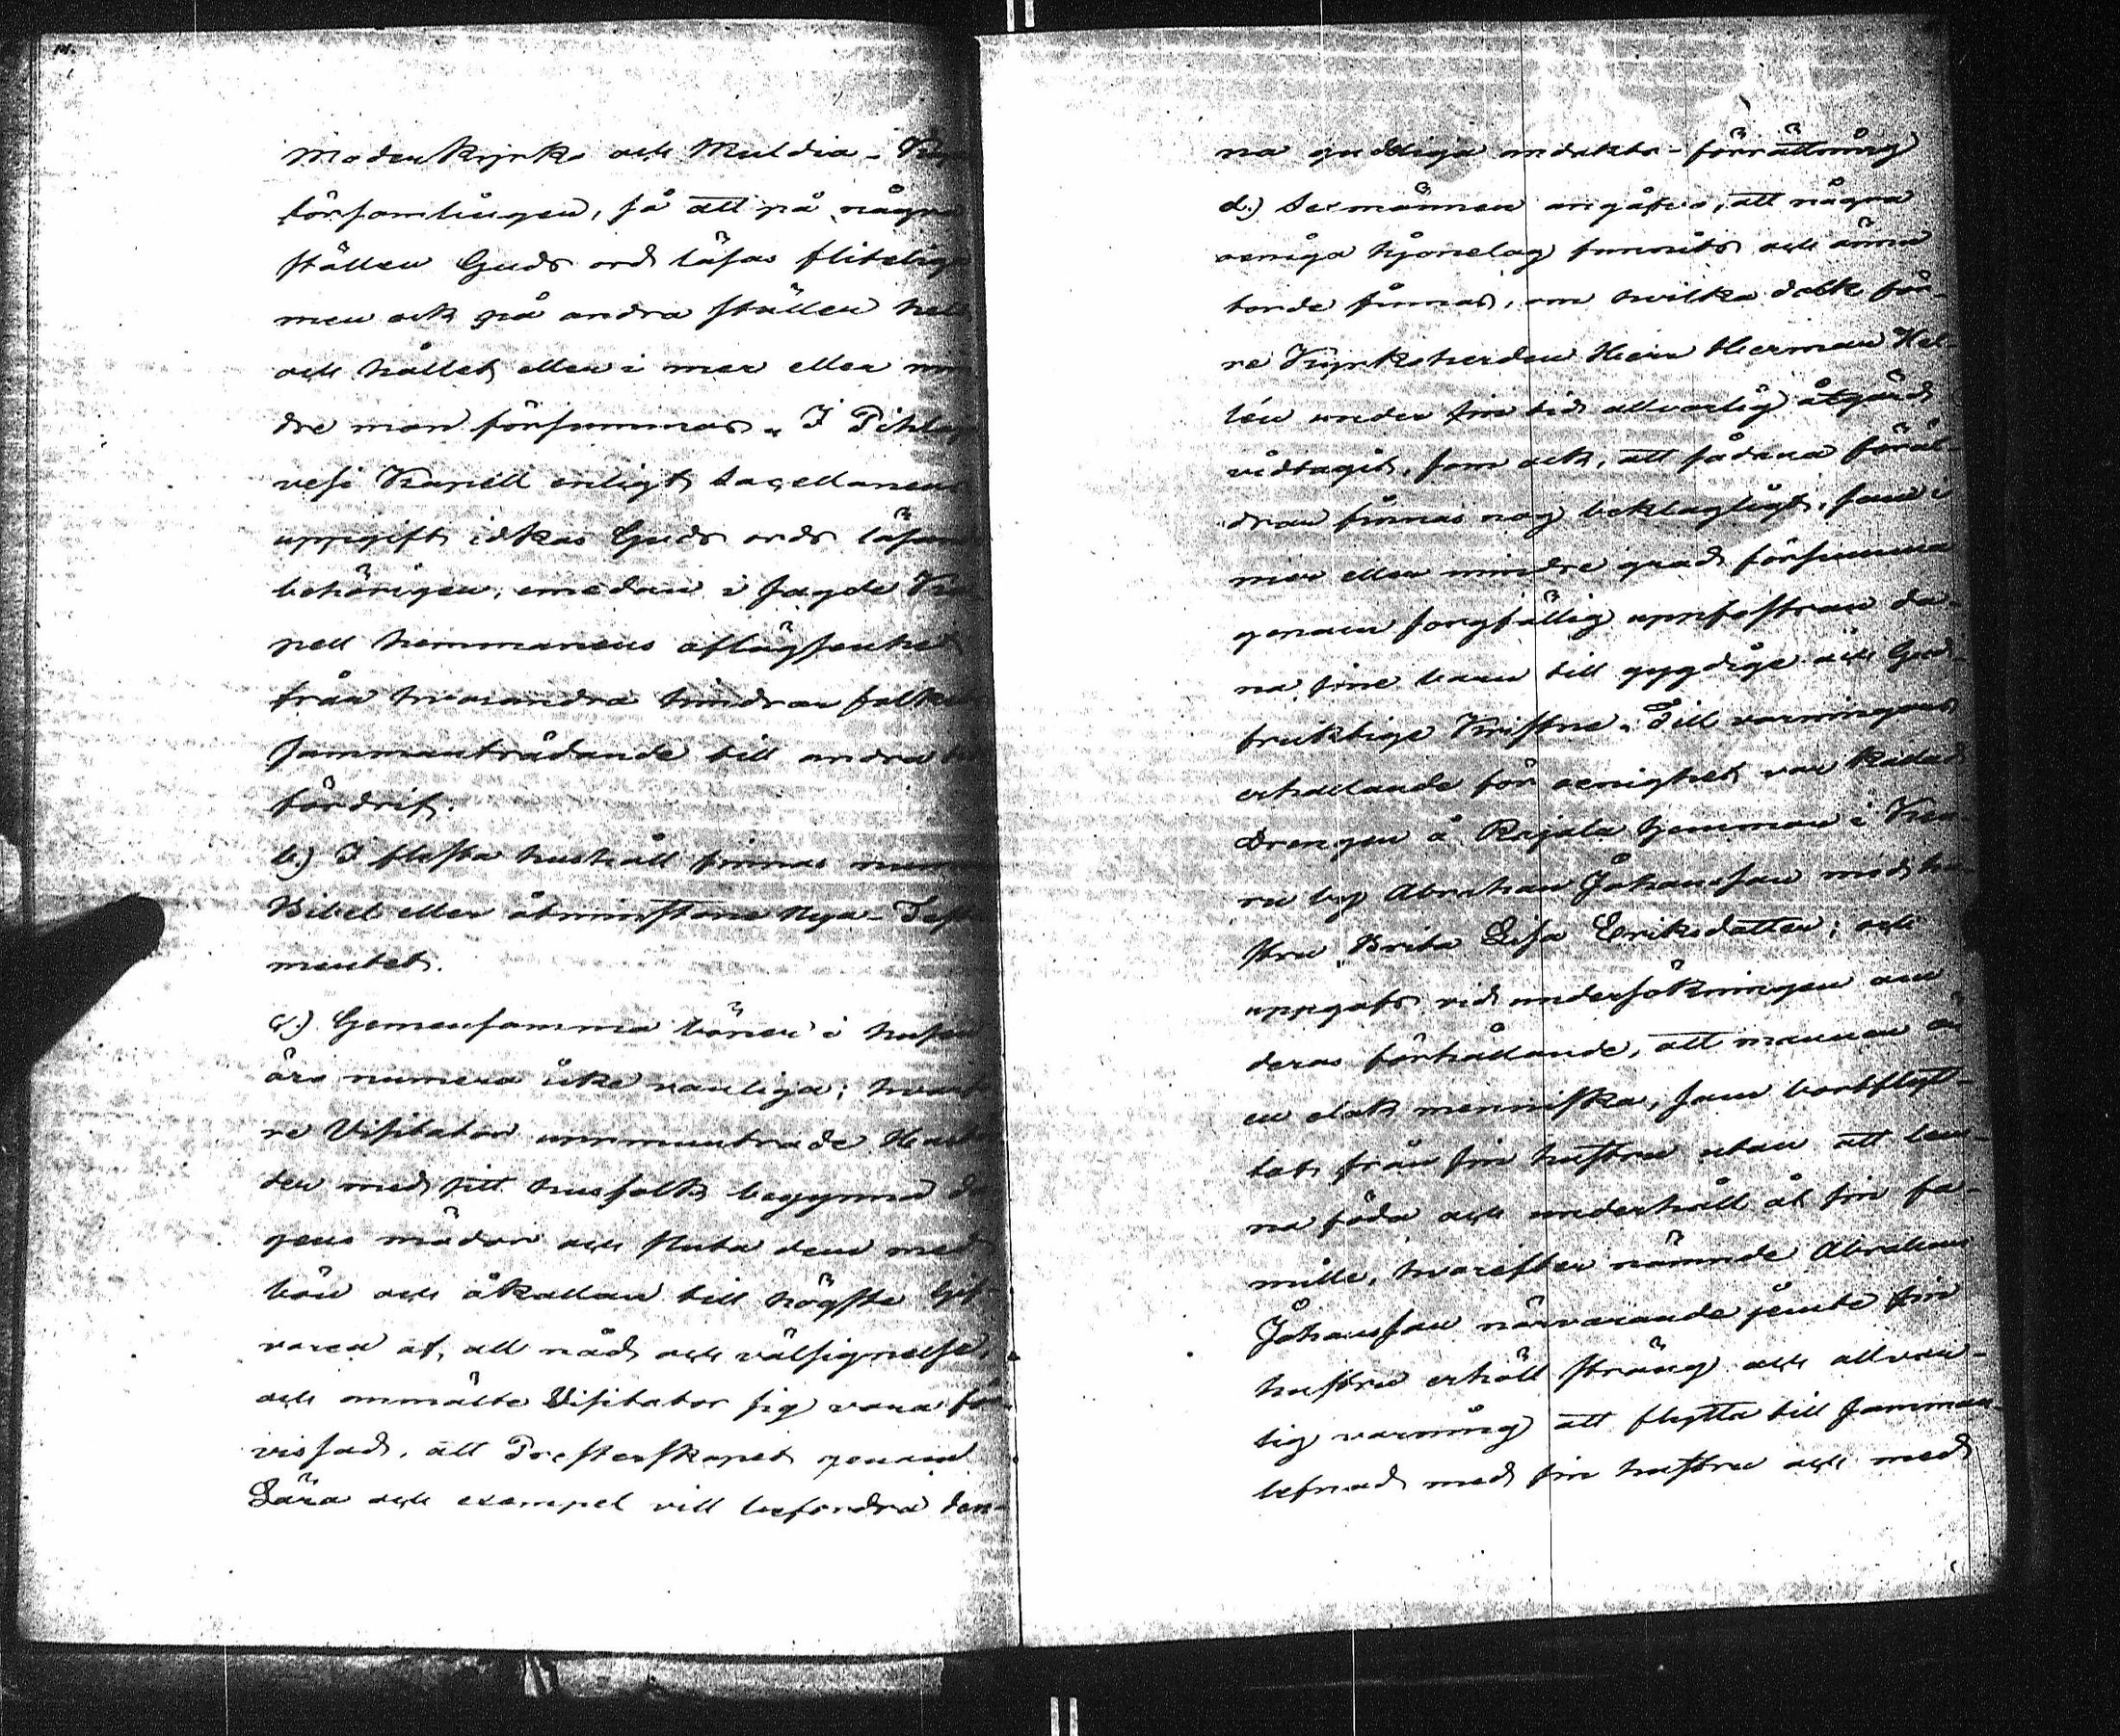 Moderkyrko och Muldia-
församlingen, så att på några
ställen Guds ord läsas flitelige
men ock på andra ställen helt
och hållet eller i mer eller min
dre mon försummas. I Pihla
vesi Kapell enligt Sacellanens
uppgift idkas Guds ords läsan
behörigen, emedan i sagde Ka
pell hemmanens aflägsenhet
från hvarandra hindrar folket
sammanträdande till andra
fördrif.
b.) I flesta hushåll finnas
Bibel eller åtminstone Nya-Testa
mentet.
c.) Gemensamma böner i husen
äro numera icke vanliga; hvarföre
re Visitator uppmuntrade
der med sitt husfolk begynna da
gens mödor och sluta dem med
bön och åkallan till högste Gif-
varen af all nåd och välsignelse,
och anmälte Visitator sig vara för-
vissad, att Presterskapet genom
Lära och exempel vill befordra den-
na gudeliga andakts-förrättning
d.) Sexmännen angåfvo, att några
oeniga hjonelag funnits och ännu
torde finnas, om hvilka dock för-
re Kyrkoherden Herr Herman Hel-
lén under sin tid allvarlig åtgärd
vidtagit, som ock, att sådana föräl-
drar finnas nog beklagligt, som i
mer eller mindre grad försumma
genom sorgfällig uppfostran da-
na sine barn till gygdige och Gud-
fruktige Kristne. Till varningens
erhållande för oenighet var kallad
Drengen å Rajala hemman i
ru by Abraham Johansson med hu-
stru Brita Lisa Eriksdotter; och
uppgafs vid undersökningen om
deras förhållande, att mannen är
en elak menniska, som bortflyt-
tat från sin hustru utan att lem-
na föda och underhåll åt sin fa-
milie, hvarefter nämnde Abraham
Johansson närvarande jemte sin
hustru erhöll sträng och allvar-
lig varning att flytta till samman
lefnad med sin hustru och med